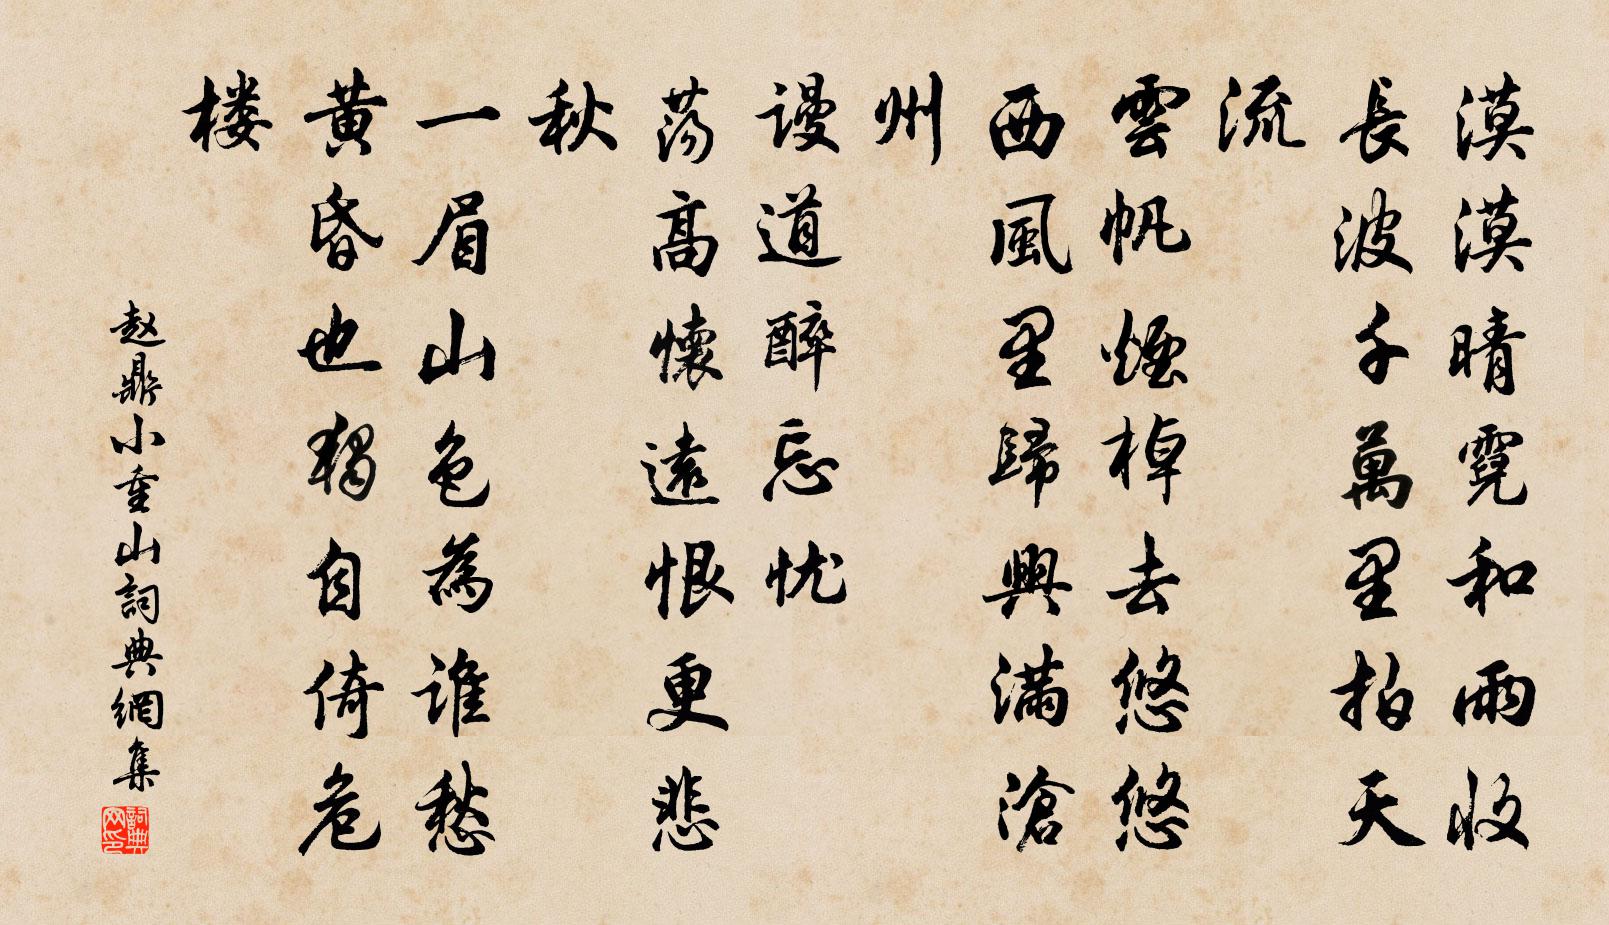 漠漠晴霓和雨收
長波千萬里拍天
流
雲帆煙棹去悠悠
西風里歸興滿滄
州
谩道醉忘忧
荡高懷遠恨更悲
秋
一眉山色為谁愁
黄昏也獨自倚危
楼
赵鼎小重山詞典網集
詞典
网印